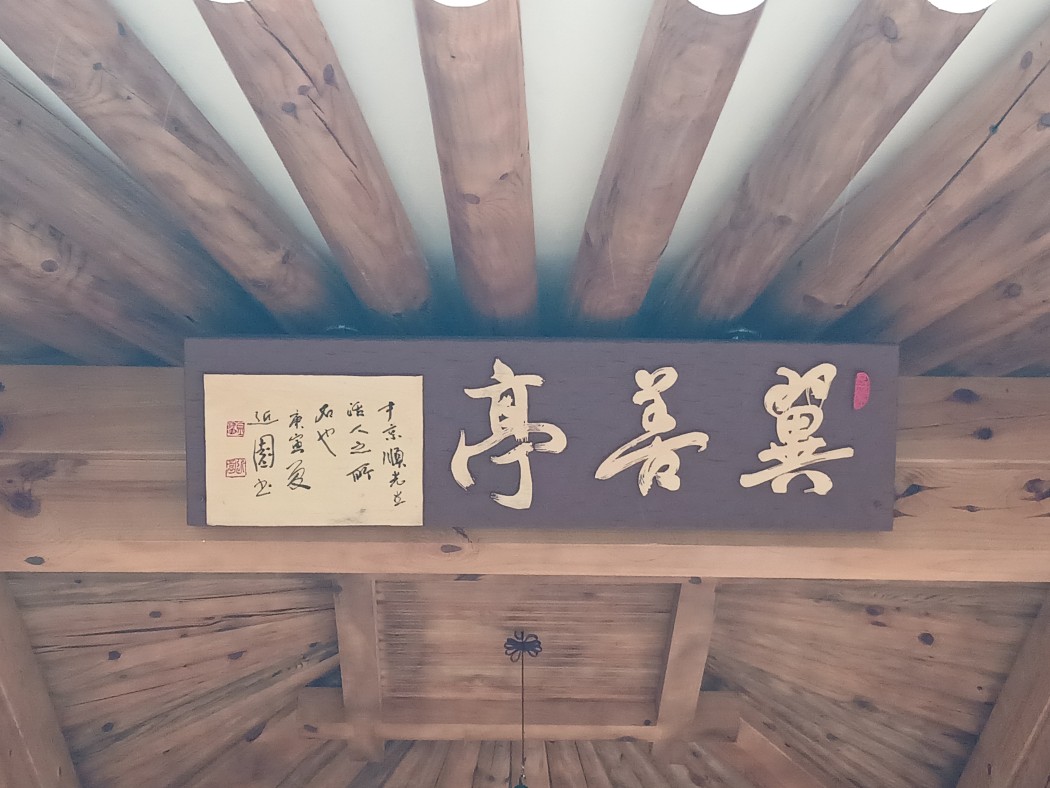 翼善亭
尹京順先生
活人之所
名也
庚寅夏
近園書